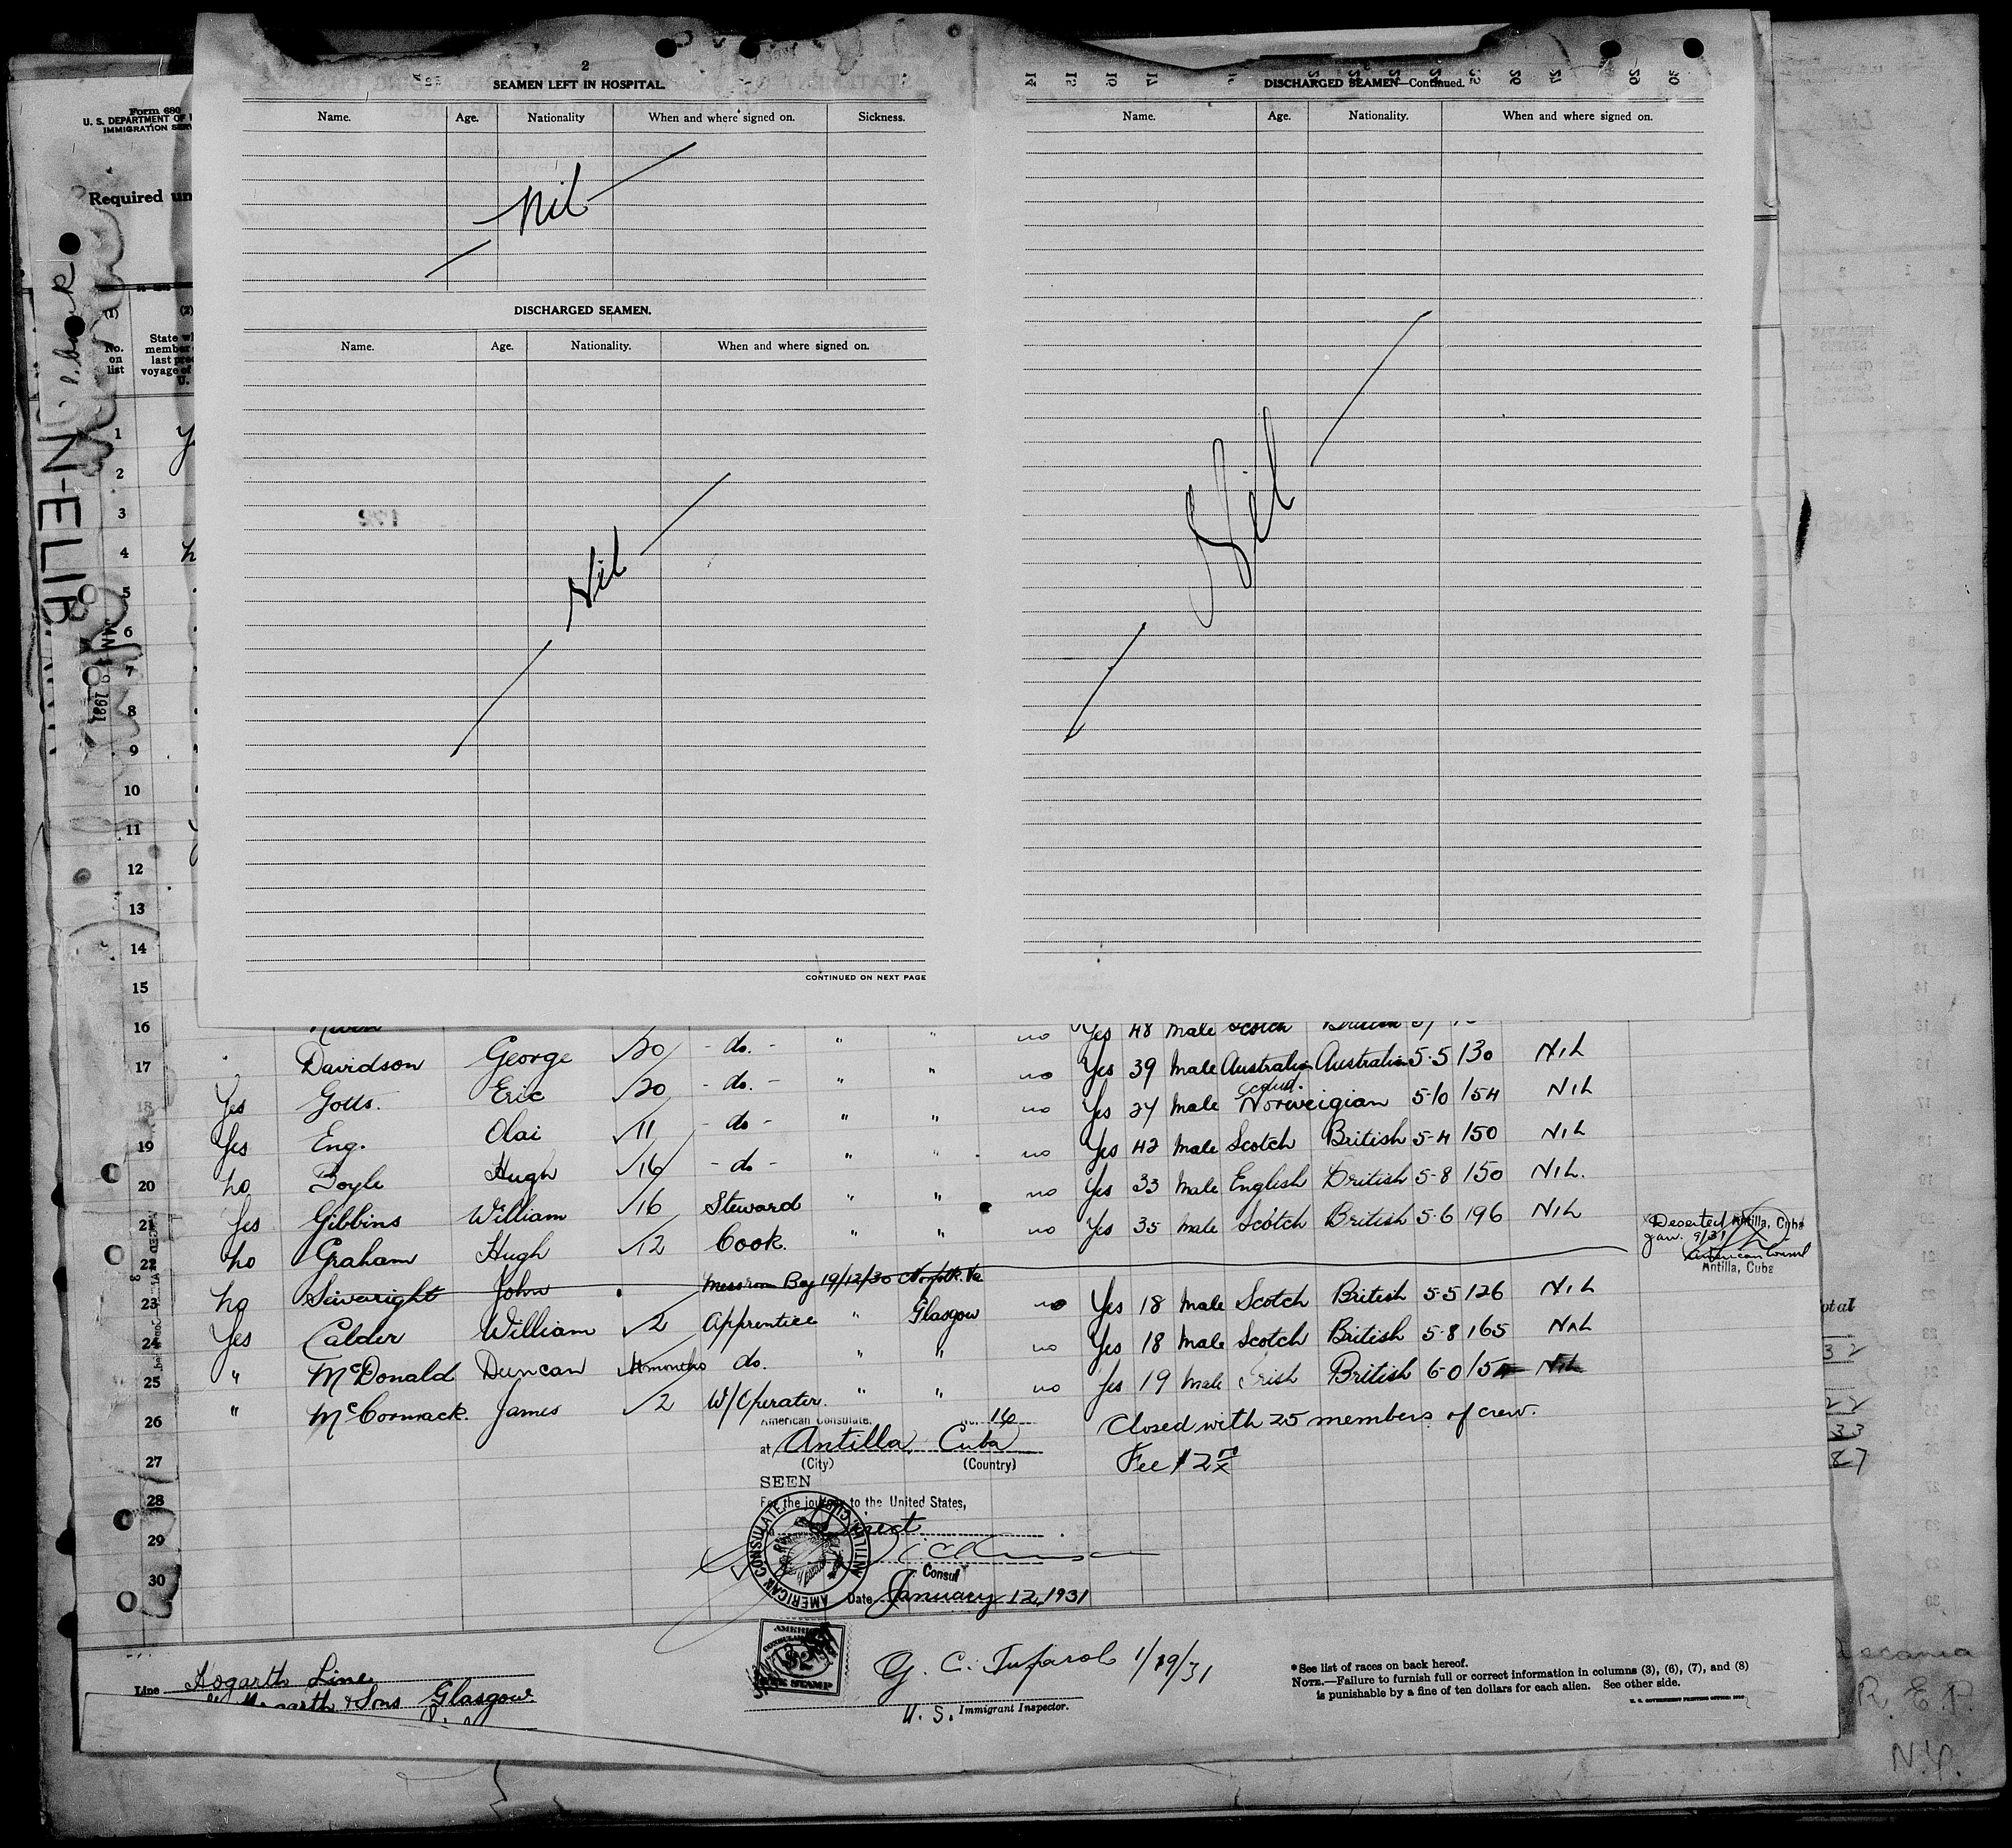 2
SEAMEN LEFT IN HOSPITAL.
Name. Age. Nationality When and where signed on. Sickness.
Nil
DISCHARGED SEAMEN.
Name. Age. Nationality. When and where signed on.
Nil
CONTINUED ON NEXT PAGE
DISCHARGED SEAMEN—Continued.
Name. Age. Nationality. When and where signed on.
Nil
Form 680
U. S. DEPARTMENT OF
IMMIGRATION
Required
(1)
No.
on
list
State
member
last
voyage of
U.
1
2
3
4
5
6
7
8
9
10
11
12
13
14
15
16 Yes 48 Male Scotch
17 Davidson George 20 - do. - " " no Yes 39 Male Australian Australian 5-5 130 Nil
18 Yes Gotts. Eric 20 - do. - " " no Yes 27 Male Scand. Norweigian 5-10 154 Nil
19 Yes Eng. Olai 11 - do - " " no Yes 42 Male Scotch British 5-4 150 Nil
20 no Boyle Hugh 16 - do - " " no Yes 33 Male English British 5-8 150 Nil.
21 Yes Gibbins William 16 Steward " " no Yes 35 Male Scotch British 5-6 196 Nil
22 no Graham Hugh 12 Cook. " "
Deserted Antilla, Cuba
Jan. 9/31
American Consul
Antilla, Cuba
23 no Sivewright John Messroom Boy 19/12/30 Norfolk. Va
24 Yes Calder William 2 Apprentice " Glasgow no Yes 18 Male Scotch British 5-5 126 Nil
25 " McDonald Duncan months do. " " no Yes 18 Male Scotch British 5-8 165 Nil
26 " McCormack. James 2 W/Operator. " " no Yes 19 Male Irish British 6-0 15 Nil
27
28
29
30
American Consulate. No. 16
at Antilla, Cuba
(City) (Country)
SEEN
For the journey to the United States,
Direct
Consul
Date January 12, 1931
AMERICAN CONSULATE
Closed with 25 members of crew.
Fee $2
Line Hogarth Line
& Sons Glasgow
1/19/31
U. S. Immigrant Inspector.
*See list of races on back hereof.
NOTE.—Failure to furnish full or correct information in columns (3), (6), (7), and (8)
is punishable by a fine of ten dollars for each alien. See other side.
R. E. P.
N.Y.